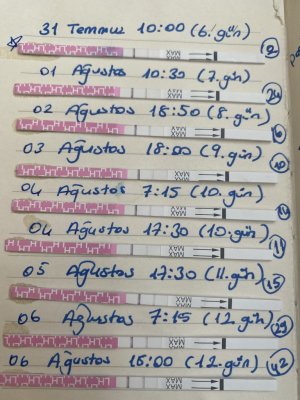 31 Temmuz 10:00 (6. gün)
01 Ağustos 10:30 (7. gün)
02 Ağustos 18:50 (8. gün)
03 Ağustos 18:00 (9. gün)
04 Ağustos 7:15 (10. gün)
04 Ağustos 17:30 (10. gün)
05 Ağustos 17:30 (11. gün)
15
06 Ağustos 7:15 (12. gün)
06 Ağustos 15:00 (12. gün)
42